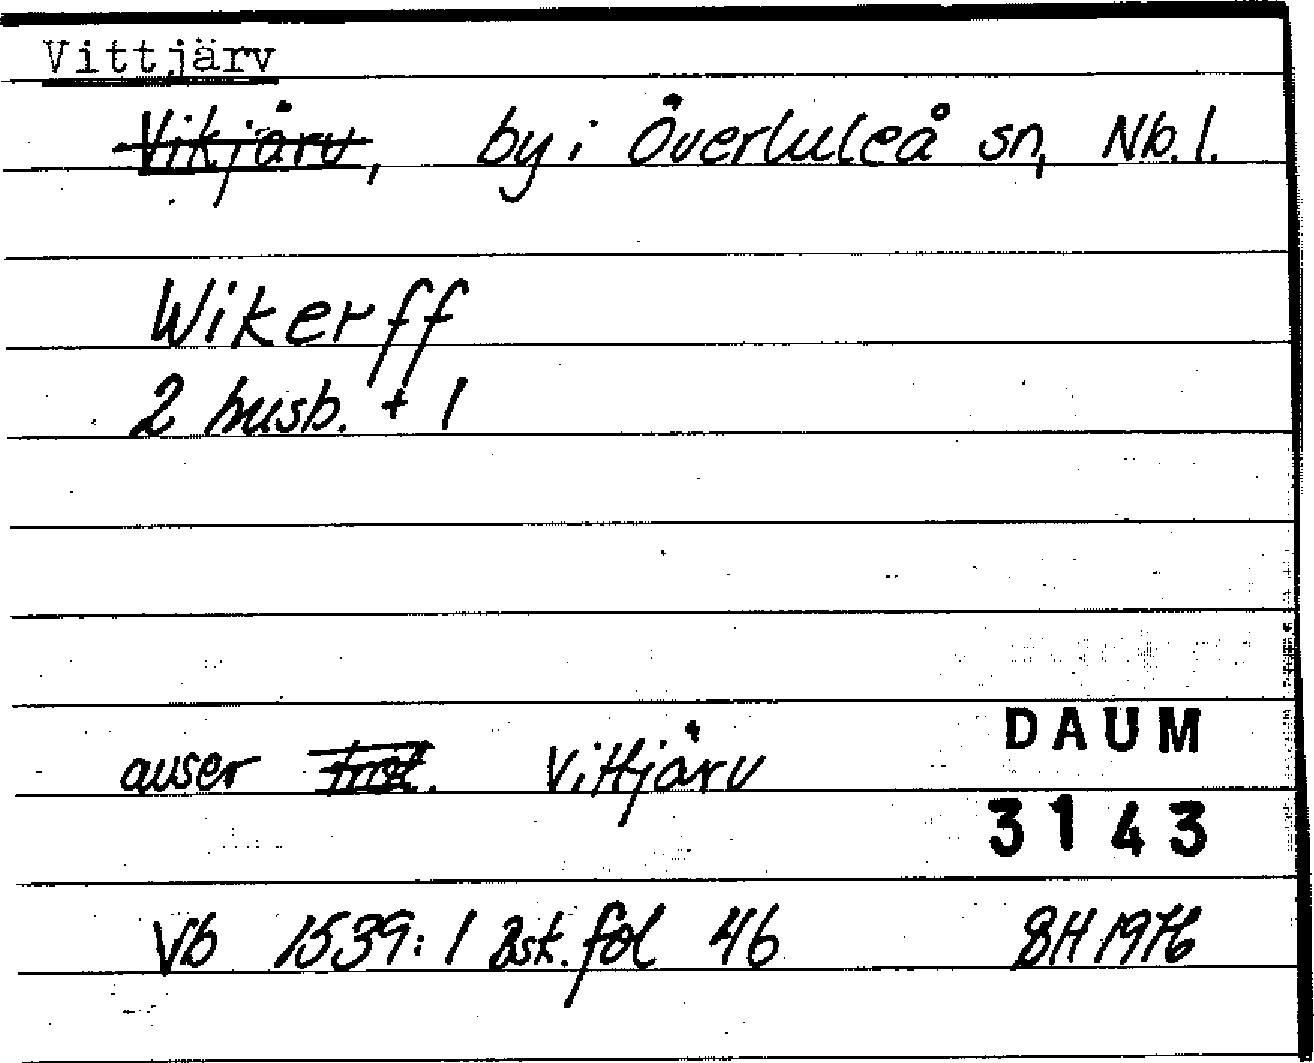 Vittjärv
Vikjärv, by i Överluleå sn, Nb. l.
Wikerff
2 husb. + 1
avser Vittjärv
DAUM
3143
Vb 1539:1 Bst. fol 46 BH 1976